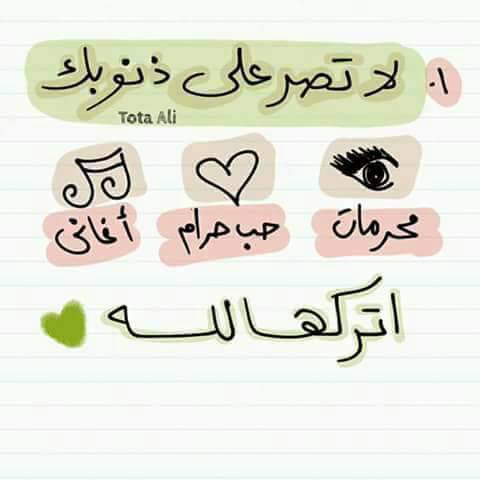 ١. لا تصر على ذنوبك
Tota Ali
محرمات
حب حرام
أغاني
اتركها لله